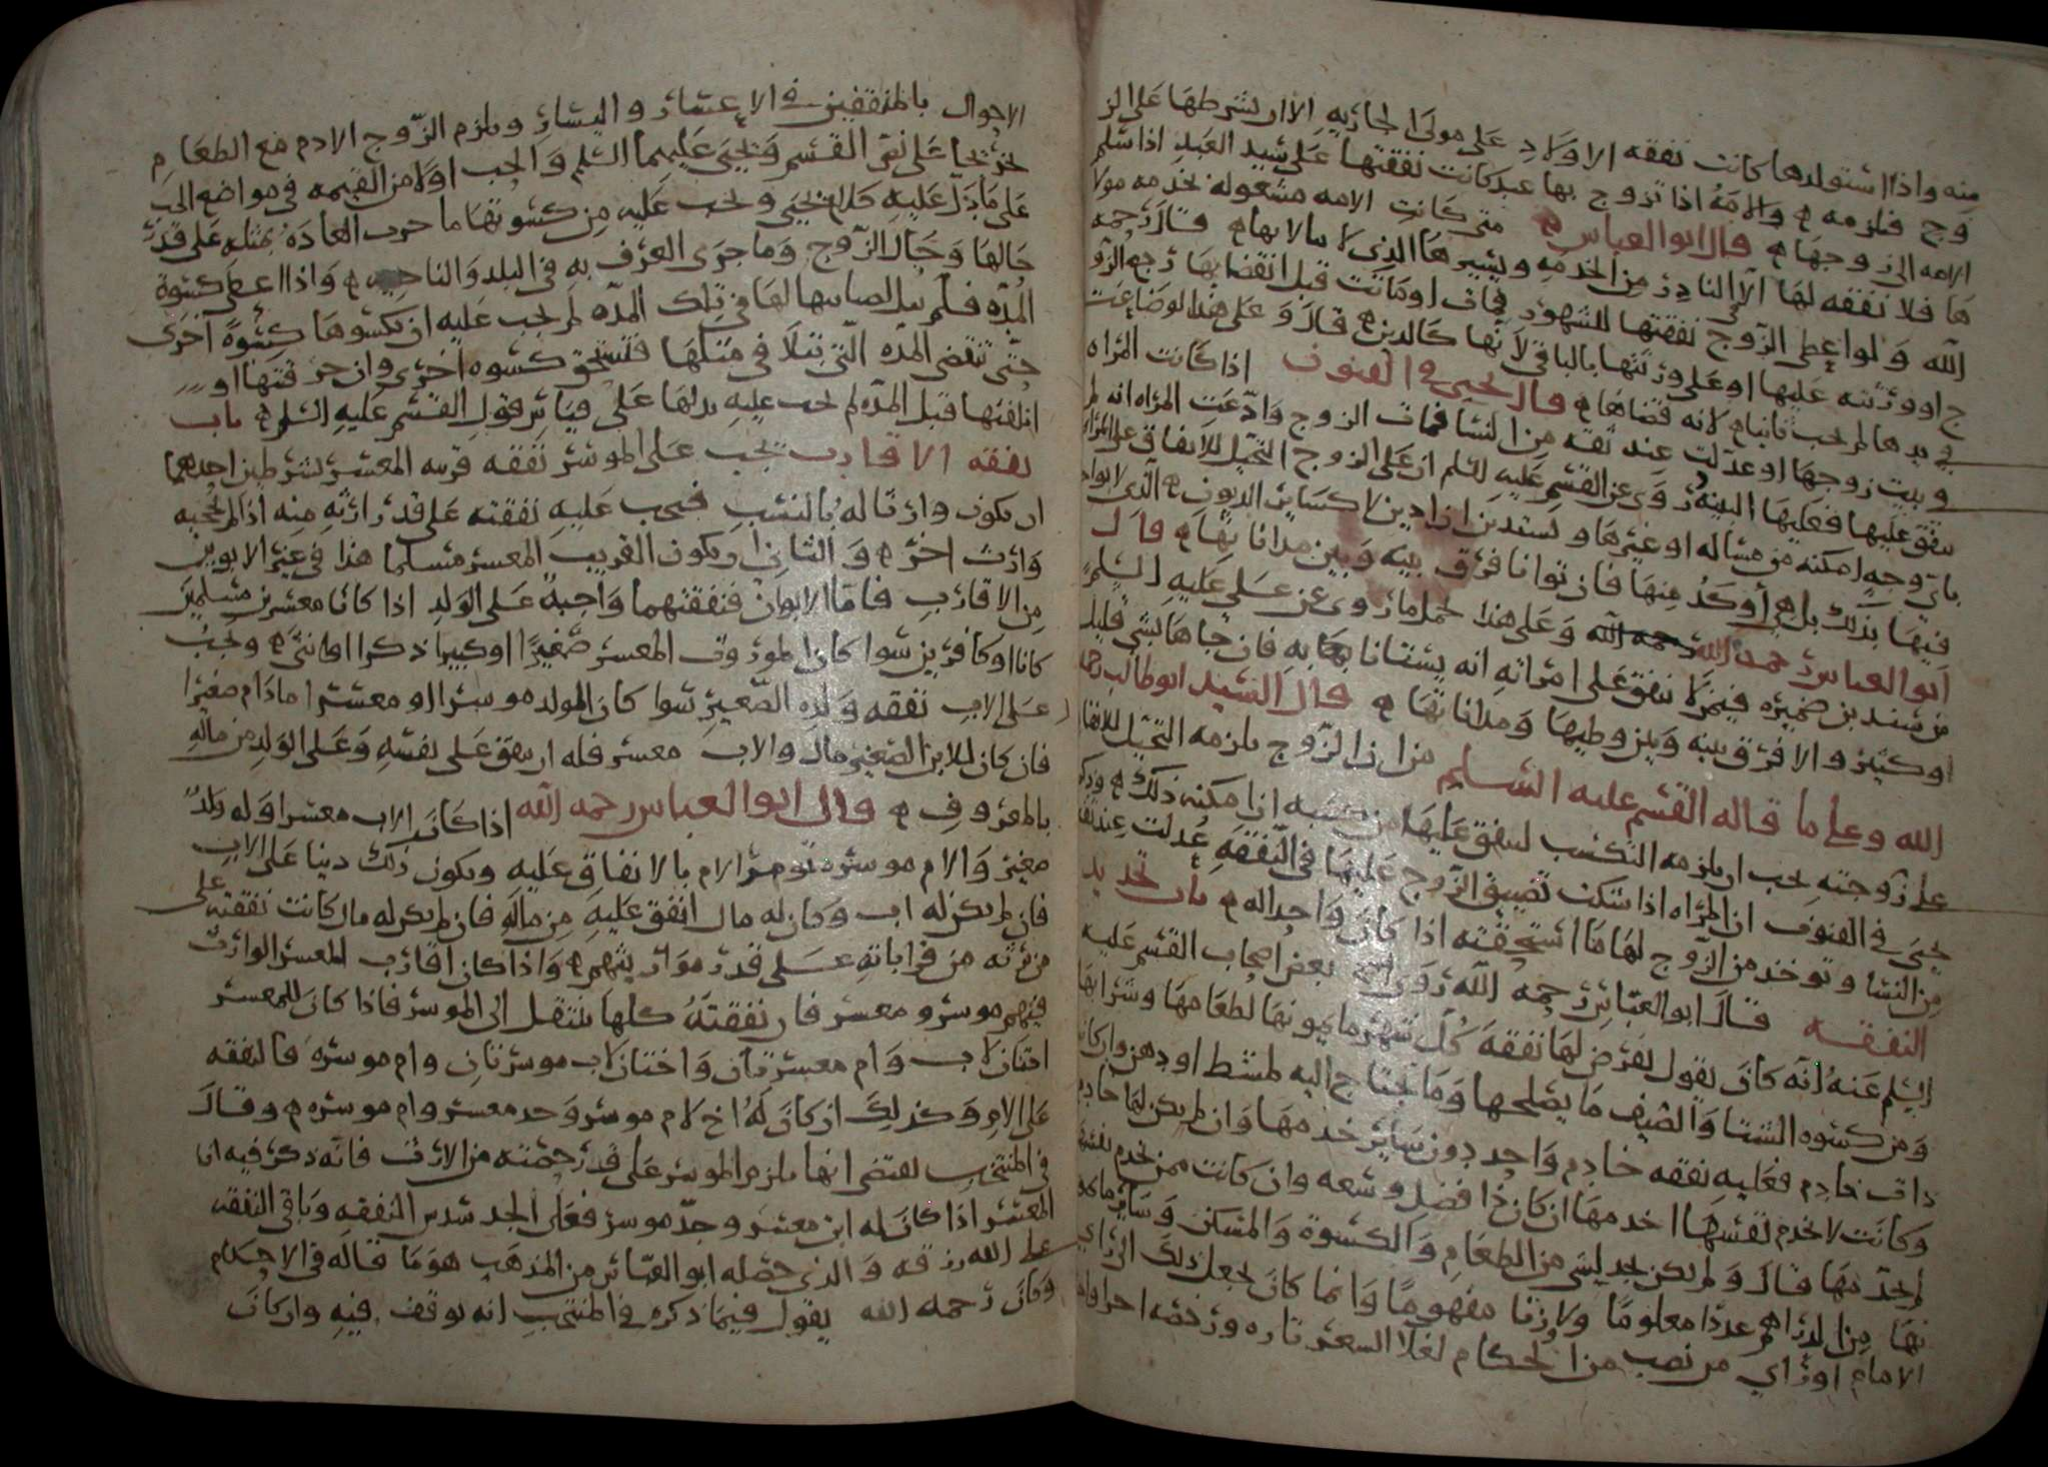 منه واذا استولدها كانت نفقه الاولاد على مولى الجاريه الا ان يشرطها على الز
وج فيلزمه والامه اذا تزوج بها عبد كانت نفقتها على سيد العبد اذا سلم
الامه الى زوجها قال ابو العباس متى كانت الامه مشغوله بخدمه مولا
ها فلا نفقه لها الا النادر من الخدمه ويسيرها الذي لا يبالا بها قال رحمه
الله ولو اعطى الزوج نفقتها للشهور فمات او ماتت قبل انقضائها رجع الزو
ج او ورثته عليها او على ورثتها بالباقي لانها كالدين قال وعلى هذا لو ضاعت
في يدها لم يجب ثانيا لانه قضاها قال يحيى في الفنون اذا كانت المراه
في بيت زوجها او عدلت عند ثقه من النسا فمات الزوج وادعت المراه انه لم
ينفق عليها فعليها البينه روى عن القسم عليه السلم ان على الزوج التحيل للانفاق على المراه
باي وجه امكنه من مساله او غيرها ويستدين ان ادين لا كسائر الديون الذي لا يواخذ
فيها بذلك بل هي أوكد منها فان توانا فرق بينه وبين مدانانها قال
ابو العباس رحمه الله وعلى هذا يحمل ما روي عن علي عليه السلم
من سند بن ضميره فيمن لا ينفق على امراته انه يستانا بها به فان جاها بشي قليل
او كثير والا فرق بينه وبين وطيها ومداناتها قال السيد ابو طالب رحمه
الله وعلى ما قاله القسم عليه السلم من ان الزوج يلزمه التحيل للانفاق
على زوجته يجب ان يلزمه التكسب لينفق عليها من كسبه ان امكنه ذلك وذكر
يحيى في الفنون ان المراه اذا شكت تضييق الزوج عليها في النفقه عدلت عند ثقه
من النسا وتوخذ من الزوج لها ما استحقته اذا كان واجدا له باب تحديد
النفقه قال ابو العباس رحمه الله روى بعض اصحاب القسم عليه
السلم عنه انه كان يقول يفرض لها نفقه كل شهر ما يمونها لطعامها وشرابها
ومن كسوه الشتا والصيف ما يصلحها وما تحتاج اليه لمشط او دهن وان كانت
ذات خادم فعليه نفقه خادم واحد دون سائر خدمها وان لم يكن لها خادم
وكانت لا تخدم نفسها اخدمها ان كان ذا فضل وسعه وان كانت ممن تخدم نفسها
لم يخدمها قال ولم يكن يحد لشي من الطعام والكسوة والمسكن وسائر ما يمو
نها من الدراهم عددا معلوما ولا وزنا مفهوما وانما كان يجعل ذلك الى راي
الامام او راي من نصب من الحكام لغلا السعر تاره ورخصه اخرا
الاحوال بالمنفقين في الاعسار واليسار ويلزم الزوج الادم مع الطعام
تخريجا على نص القسم ويحيى عليهما السلم والحب اولا من القيمه في مواضع الحب
على ما دل عليه كلام يحيى ويجب عليه من كسوتها ما جرت العادة بمثله على قدر
حالها وحال الزوج وما جرى العرف به في البلد والناحيه واذا اعطى كسوة
المدة فلم تبل لصيانتها لها في تلك المدة لم يجب عليه ان يكسوها كسوة اخرى
حتى تنقضي المدة التي تبلا في مثلها فتستحق كسوه اخرى وان خرقتها او
اتلفتها قبل المدة لم يجب عليه بدلها على قياس قول القسم عليه السلم باب
نفقه الاقارب تجب على الموسر نفقه قريبه المعسر بشرطين احدهما
ان يكون وارثا له بالنسب فيجب عليه نفقته على قدر ارثه منه اذا لم يحجبه
وارث اخر والثاني ان يكون القريب المعسر مسلما هذا في غير الابوين
من الاقارب فاما الابوان فنفقتهما واجبة على الولد اذا كانا معسرين مسلمين
كانا او كافرين سوا كان الموروث المعسر صغيرا او كبيرا ذكرا او انثى وتجب
على الاب نفقه ولده الصغير سوا كان المولد موسرا او معسرا ما دام صغيرا
فان كان للابن الصغير مال والاب معسر فله ان ينفق على نفسه وعلى الولد من ماله
بالمعروف قال ابو العباس رحمه الله اذا كان الاب معسرا وله ولد
صغير والام موسره تومر الام بالانفاق عليه ويكون ذلك دينا على الاب
فان لم يكن له اب وكان له مال انفق عليه من ماله فان لم يكن له مال كانت نفقته على
من يرثه من قراباته على قدر مواريثهم واذا كان اقارب المعسر الوارث
فيهم موسر ومعسر فان نفقته كلها تنتقل الى الموسر فاذا كان للمعسر
اختان لاب وام معسرتان واختان لاب موسرتان وام موسره فالنفقه
على الام وكذلك ان كان له اخ لام موسر وجد معسر وام موسره وقال
في المنتخب يقتضي انها يلزم الموسر على قدر حصته من الارث فانه ذكر فيه ان
المعسر اذا كان له ابن معسر وجد موسر فعلى الجد سدس النفقه وباقي النفقه
على الله رزقه والذي حصله ابو العباس من المذهب هو ما قاله في الاحكام
وكان رحمه الله يقول فيما ذكره في المنتخب انه توقف فيه وان كان